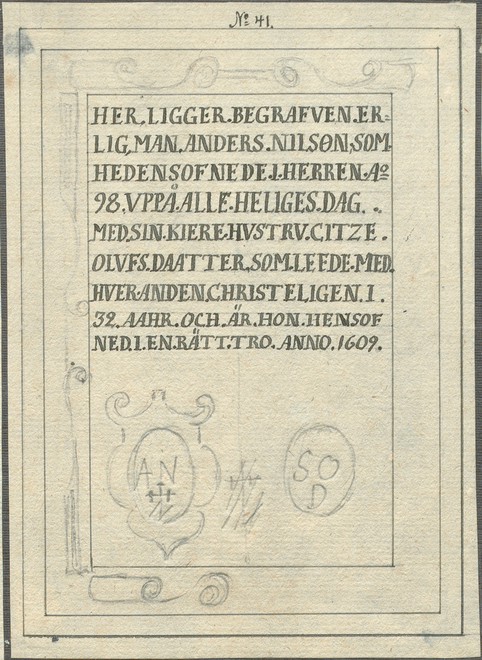 No 41.
HER.LIGGER.BEGRAFVEN.ER=
LIG,MAN.ANDERS.NILSØN,SOM.
HEDENSOFNEDE.I.HERREN.Ao
98.VPPÅ.ALLE.HELIGES.DAG..
MED.SIN.KIERE.HVSTRV.CITZE.
OLVFS.DAATTER,SOM.LEFDE.MED.
HVERANDEN,CHRISTELIGEN.I.
32.AAHR.OCH.ÄR.HON.HENSOF
NED.I.EN.RÄTT.TRO.ANNO.1609.
AN
SO
D